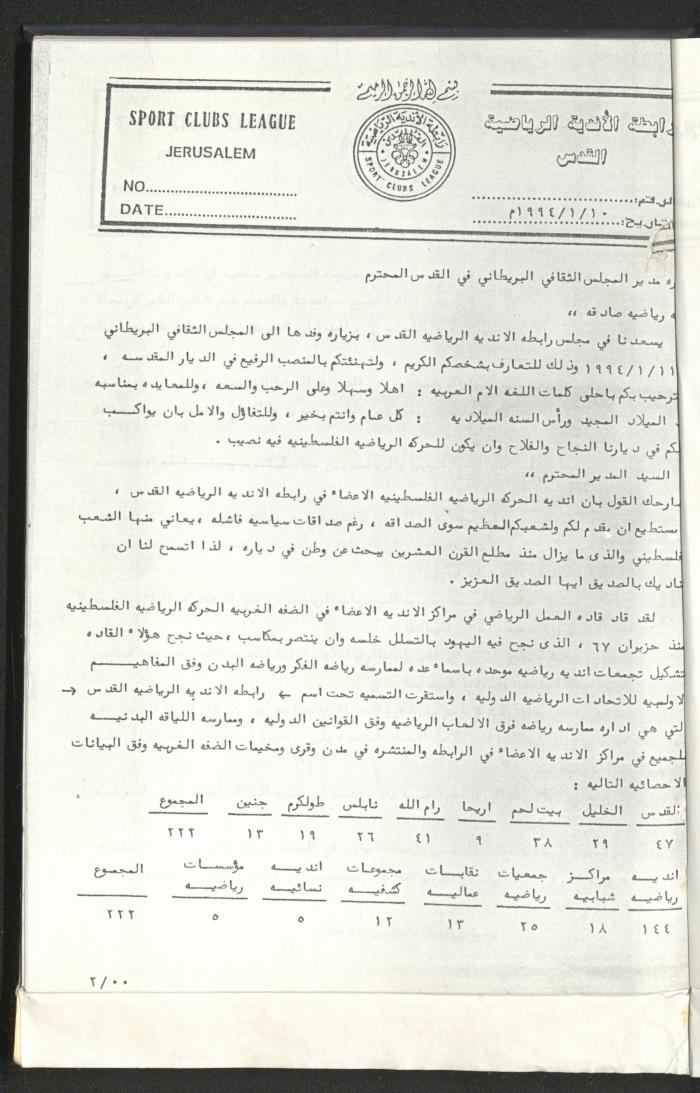 بسم الله الرحمن الرحيم
SPORT CLUBS LEAGUE
JERUSALEM
NO
DATE
رابطة الأندية الرياضية
القدس
JERUSALEM
SPORT CLUBS LEAGUE
رابطة الأندية الرياضية
القدس
الرقم:
التاريخ: ١٩٩٤/١/١٠م
ره مدير المجلس الثقافي البريطاني في القدس المحترم
ه رياضيه صادقه ،،
يسعدنا في مجلس رابطه الانديه الرياضيه القدس ، بزياره وفدها الى المجلس الثقافي البريطاني
١٩٩٤/١/١١ وذلك للتعارف بشخصكم الكريم ، ولتهنئتكم بالمنصب الرفيع في الديار المقدسه ،
ترحيب بكم باحلى كلمات اللغه الام العربيه : اهلا وسهلا وعلى الرحب والسعه ، وللمعايده بمناسبه
الميلاد المجيد ورأس السنه الميلاديه : كل عام وانتم بخير ، وللتفاؤل والامل بان يواكب
لكم في ديارنا النجاح والفلاح وان يكون للحركه الرياضيه الفلسطينيه فيه نصيب .
السيد المدير المحترم ،،
صارحك القول بان انديه الحركه الرياضيه الفلسطينيه الاعضاء في رابطه الانديه الرياضيه القدس ،
ستطيع ان يقدم لكم ولشعبكم العظيم سوى الصداقه ، رغم صداقات سياسيه فاشله ، يعاني منها الشعب
فلسطيني والذى ما يزال منذ مطلع القرن العشرين يبحث عن وطن في دياره ، لذا اتسمح لنا ان
ناديك بالصديق ايها الصديق العزيز .
لقد قاد قاده العمل الرياضي في مراكز الانديه الاعضاء في الضفه الغربيه الحركه الرياضيه الفلسطينيه
منذ حزيران ٦٧ ، الذى نجح فيه اليهود بالتسلل خلسه وان ينتصر بمكاسب ، حيث نجح هؤلاء القاده
تشكيل تجمعات انديه رياضيه موحده باسماء عده لممارسه رياضه الفكر ورياضه البدن وفق المفاهيم
الاولمبيه للاتحادات الرياضيه الدوليه ، واستقرت التسميه تحت اسم ← رابطه الانديه الرياضيه القدس →
التي هي اداره ممارسه رياضه فرق الالعاب الرياضيه وفق القوانين الدوليه ، وممارسه اللياقه البدنيه
للجميع في مراكز الانديه الاعضاء في الرابطه والمنتشره في مدن وقرى ومخيمات الضفه الغربيه وفق البيانات
الاحصائيه التاليه :
القدس الخليل بيت لحم اريحا رام الله نابلس طولكرم جنين المجموع
٤٧ ٢٩ ٣٨ ٩ ٤١ ٢٦ ١٩ ١٣ ٢٢٢
انديه مراكز جمعيات نقابات مجموعات انديه مؤسسات المجموع
رياضيه شبابيه رياضيه عماليه كشفيه نسائيه رياضيه
١٤٤ ١٨ ٢٥ ١٣ ١٢ ٥ ٥ ٢٢٢
٢/٠٠